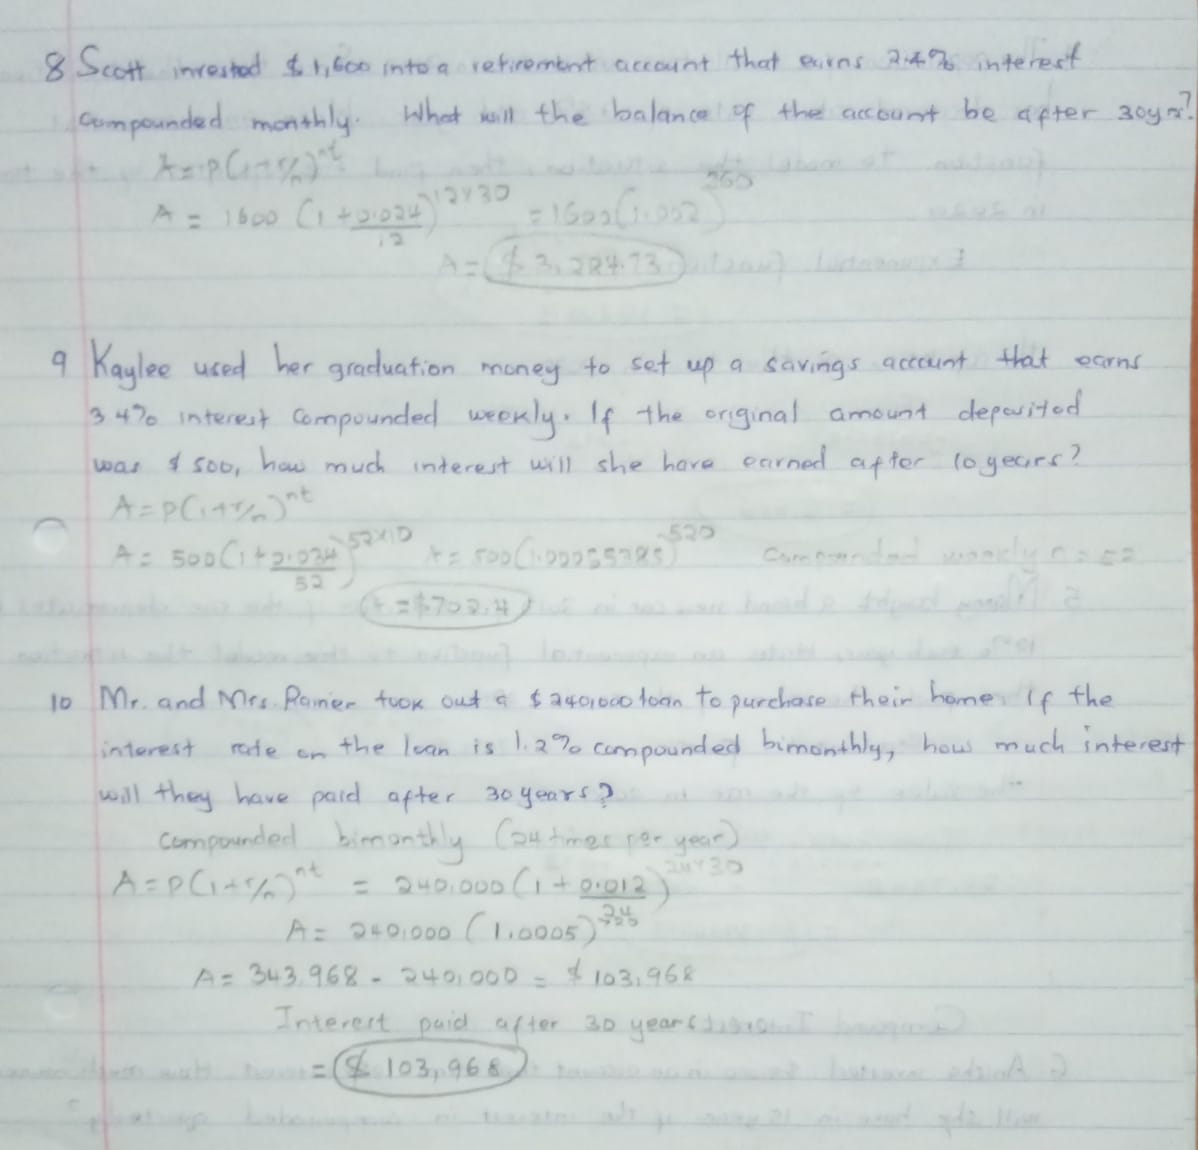 8 Scott invested $1,600 into a retirement account that earns 2.4% interest
compounded monthly. What will the balance of the account be after 30yrs?
A=P(1+r/n)^nt
A = 1600 (1 + 0.024/12)^12×30 = 1600(1.002)^360
A = $3,284.73
9 Kaylee used her graduation money to set up a savings account that earns
3.4% interest compounded weekly. If the original amount deposited
was $500, how much interest will she have earned after 10 years?
A=P(1+r/n)^nt
A = 500(1+0.034/52)^52×10 A = 500(1.00065385)^520 Compounded weekly n = 52
A = $702.4
10 Mr. and Mrs. Rainer took out a $240,000 loan to purchase their home. If the
interest rate on the loan is 1.2% compounded bimonthly, how much interest
will they have paid after 30 years?
compounded bimonthly (24 times per year)
A=P(1+r/n)^nt = 240,000 (1 + 0.012/24)^24×30
A = 240,000 (1.0005)
A = 343,968 - 240,000 = $103,968
Interest paid after 30 years
= $103,968